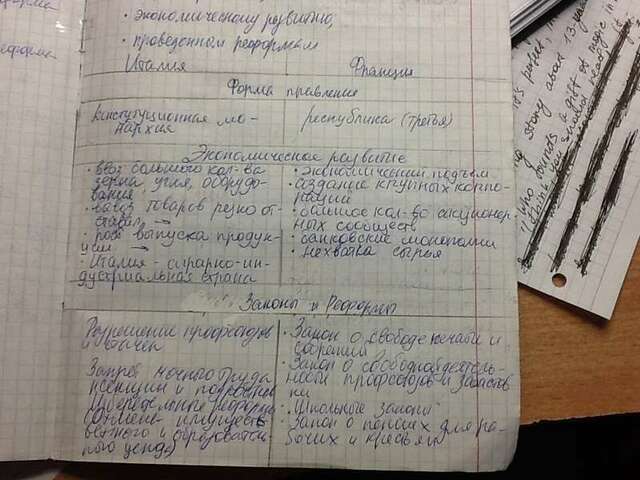 • экономическому развитию,
• проведенным реформам
Италия
Франция
Форма правления
конституционная мо-
нархия
республика (третья)
Экономическое развитие
• ввоз большого кол-ва
зерна, угля, оборудо-
вания
• вывоз товаров резко от-
ставал →
• рост выпуска продук-
ции →
• Италия - аграрно-ин-
дустриальная страна
• экономический подъем
• создание крупных корпо-
раций
• большое кол-во акционер-
ных сообществ
• банковские монополии
• нехватка сырья
Законы и Реформы
Разрешение профсоюзов
и стачек
Запрет ночного труда
женщин и подростков
реформа
(отмена имуществ
венного и образователь
ного ценза)
• Закон о свободе печати и
собраний
• Закон о свободной деятель-
ности профсоюзов и забастов
ки
• Школьные законы
• Закон о пенсиях для ра-
бочих и крестьян
story about 13 year
who a gift of magic
I think you should read